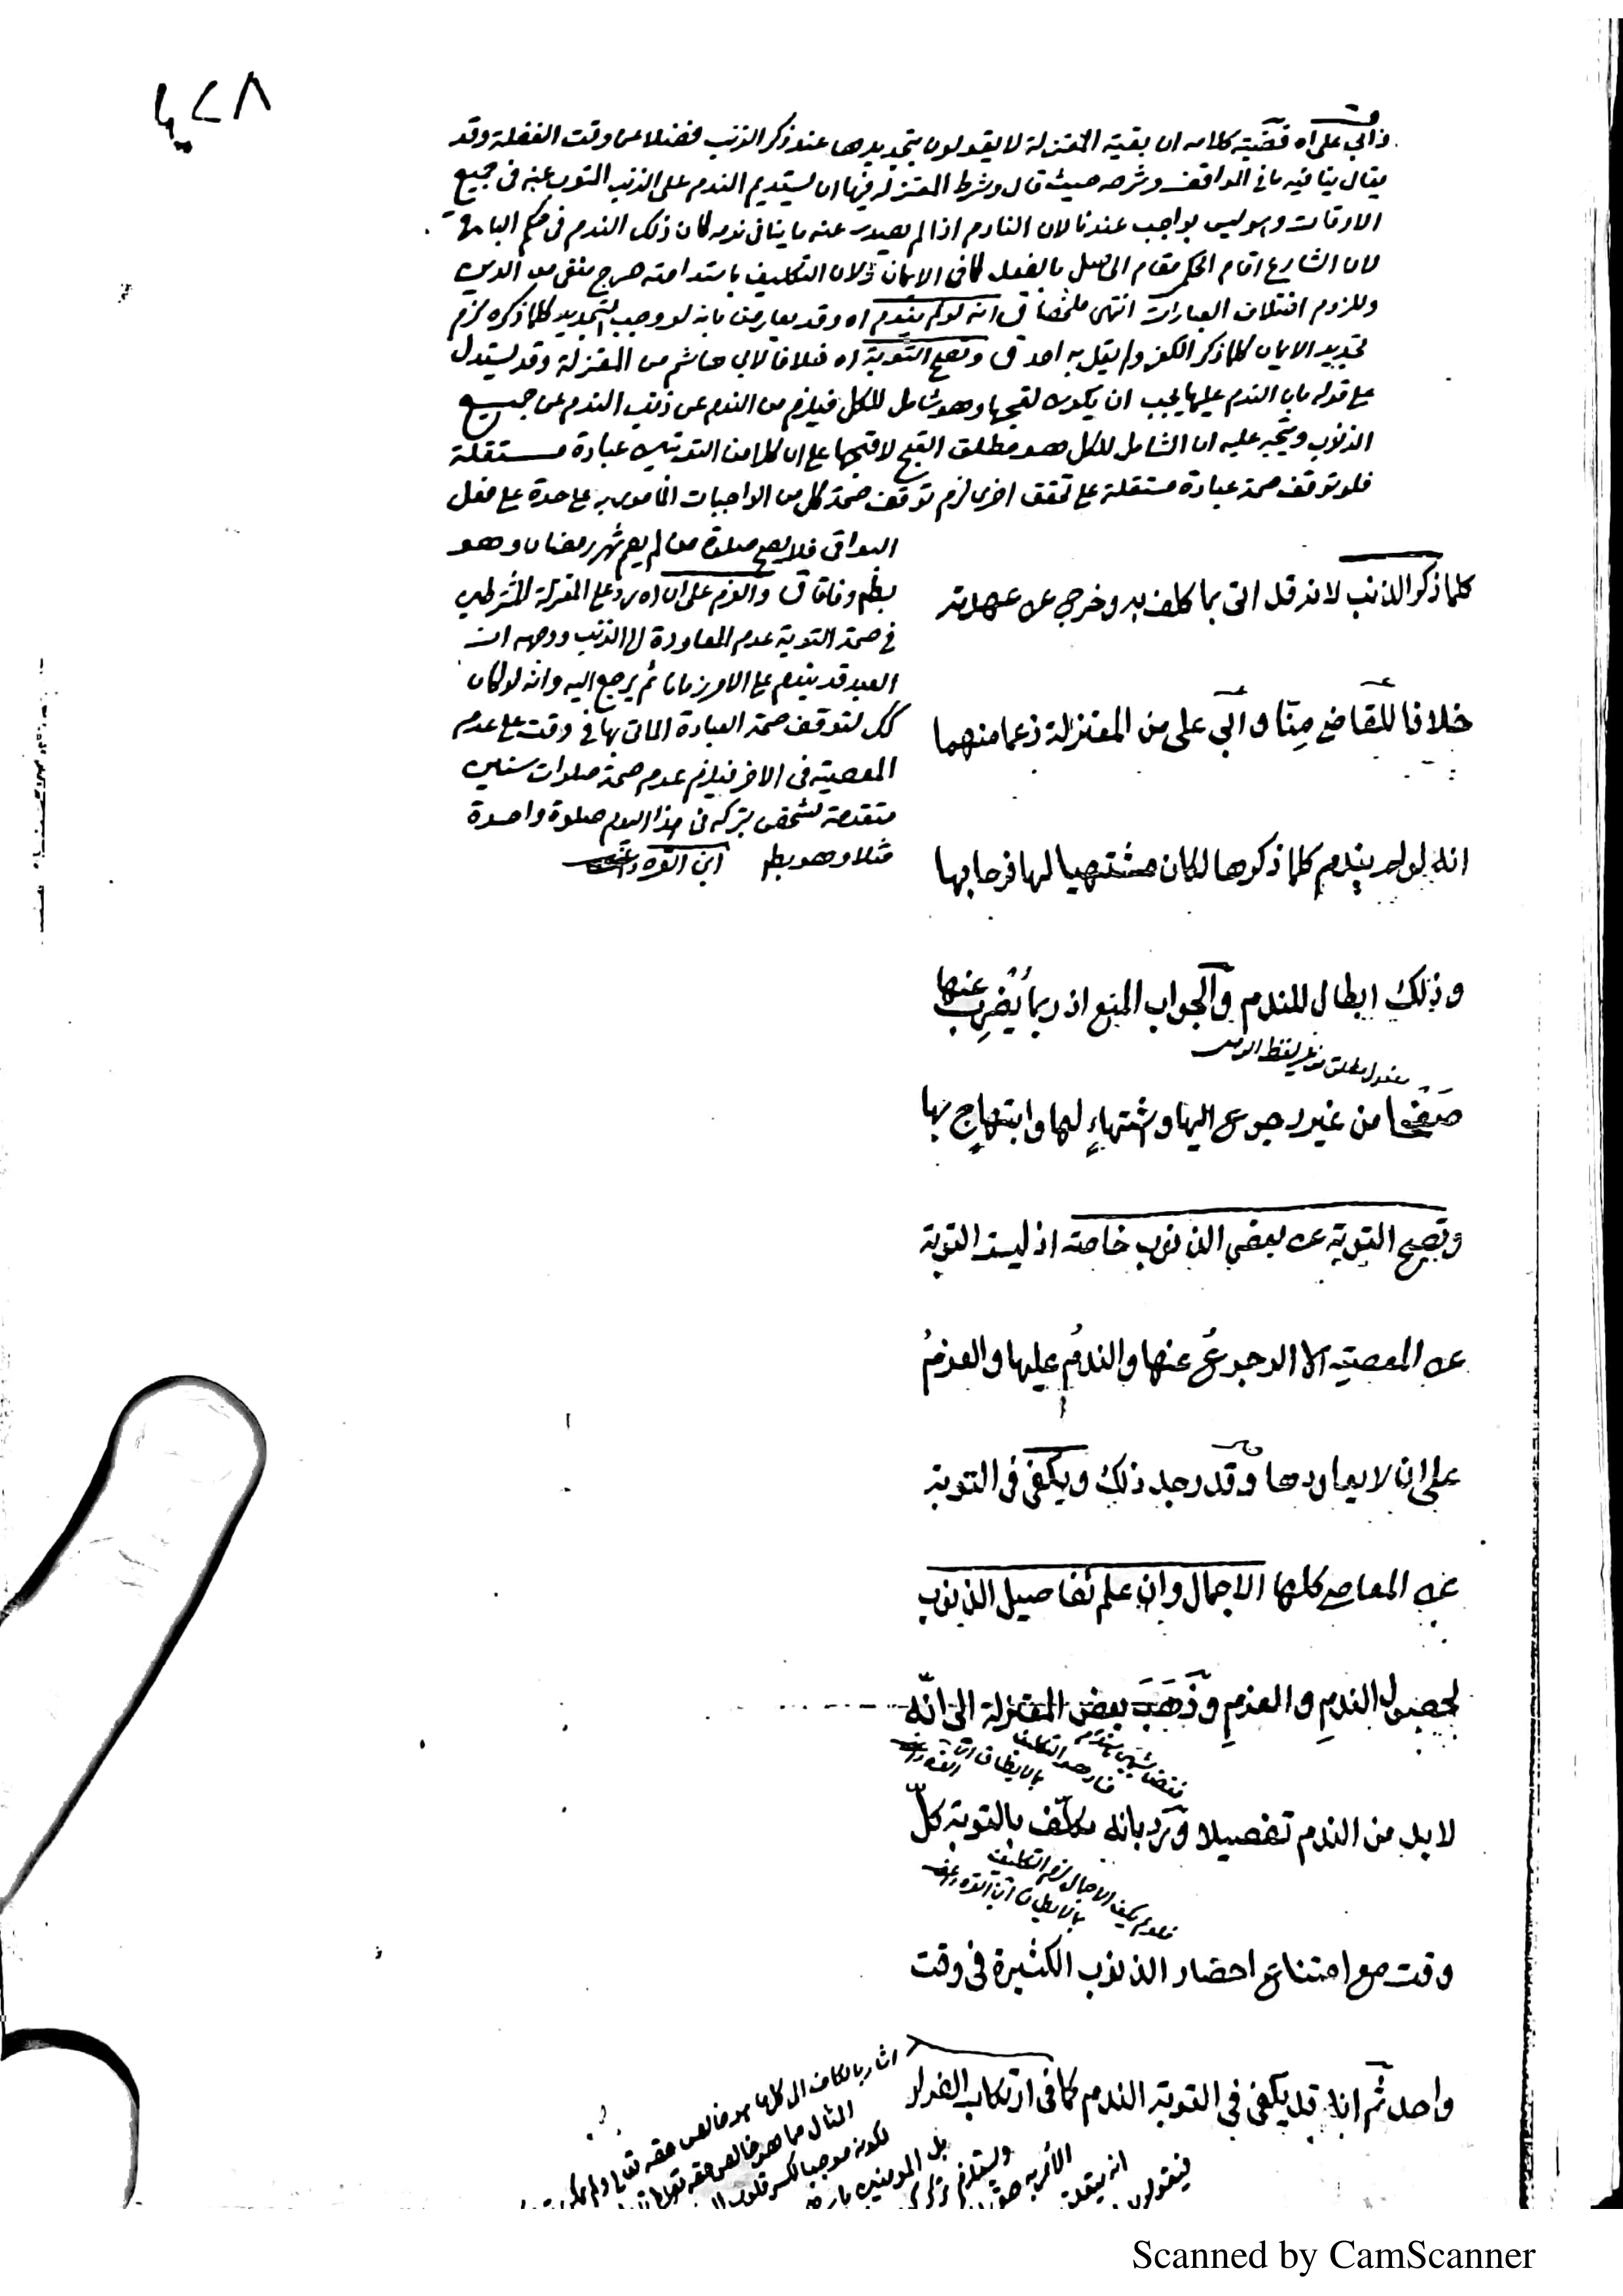 ٤٢٨
وابي على اه قضية كلامه ان بقية المعتزلة لا يقولون بتجديدها عند ذكر الذنب فضلا عن وقت الغفلة وقد
يقال ينافيه ما في المواقف وشرحه حيث قال وشرط المعتزلة فيها ان يستديم الندم على الذنب المتوب عنه في جميع
الاوقات وليس بواجب عندنا لان النادم اذا لم يصدر عنه ما ينافي ندمه كان ذلك الندم في حكم الباقي
لان الشارع اقام الحكمي مقام الحاصل بالفعل كما في الايمان ولان التكليف باستدامته حرج منفي عن الدين
وللزوم اختلاف العبارات انتهى ملخصا ق انه لو لم يندم اه وقد يعارض بانه لو وجب التجديد كلما ذكره لزم
تجديد الايمان كلما ذكر الكفر ولم يقل به احد ق وتصح التوبة اه خلافا لابي هاشم من المعتزلة وقد يستدل
على قوله بان الندم عليها يجب ان يكون لقبحها وهو شامل للكل فيلزم من الندم عن ذنب الندم عن جميع
الذنوب ويتجه عليه ان الشامل للكل هو مطلق القبح لا قبحها على ان كلا من التوبتين عبادة مستقلة
فلو توقف صحة عبادة مستقلة على تحقق اخرى لزم توقف صحة كل من الواجبات المأمور به على حدة على فعل
البواقي فلا يصح صلوة من لم يصم شهر رمضان وهو
بطم وفاقا ق والعزم على ان اه رد على المعتزلة المشترطين
في صحة التوبة عدم المعاودة الى الذنب ووجهه ان
العبد قد يندم على الامر زمانا ثم يرجع اليه وانه لو كان
كك لتوقف صحة العبادة الماتي بها في وقت على عدم
المعصية في الاخر فيلزم عدم صحة صلوات سنين
متقدمة لشخص بتركه في هذا اليوم صلوة واحدة
مثلا وهو بطم ابن القره داغي
كلما ذكر الذنب لانه قد اتى بما كلف به وخرج عن عهدته
خلافا للقاضي منّا وابي على من المعتزلة زعما منهما
انه لو لم يندم كلما ذكرها لكان مشتهيا لها فرحا بها
وذلك ابطال للندم والجواب المنع اذ ربما يُضرِب عنها
مفعول مطلق من غير لفظ
صفحا من غير رجوع اليها واشتهاءٍ لها وابتهاجٍ بها
وتصح التوبة عن بعض الذنوب خاصة اذ ليست التوبة
عن المعصية الا الرجوعُ عنها والندمُ عليها والعزمُ
على ان لا يعاودها وقد وجد ذلك ويكفي في التوبة
عن المعاصي كلها الاجمال وان علم تفاصيل الذنوب
لحصول الندمِ والعزمِ وذَهَبَ بعض المعتزلة الى انّه
لا بد من الندم تفصيلا ورد بانه مكلّف بالتوبة كلّ
فلو لم يكف الاجمال لزم التكليف
بما لا يطاق ابن القره داغي
وقت مع امتناع احضار الذنوب الكثيرة في وقت
واحد ثم انه قد يكفي في التوبة الندم كما في ارتكاب الفرار
اشار بالكاف الى
Scanned by CamScanner